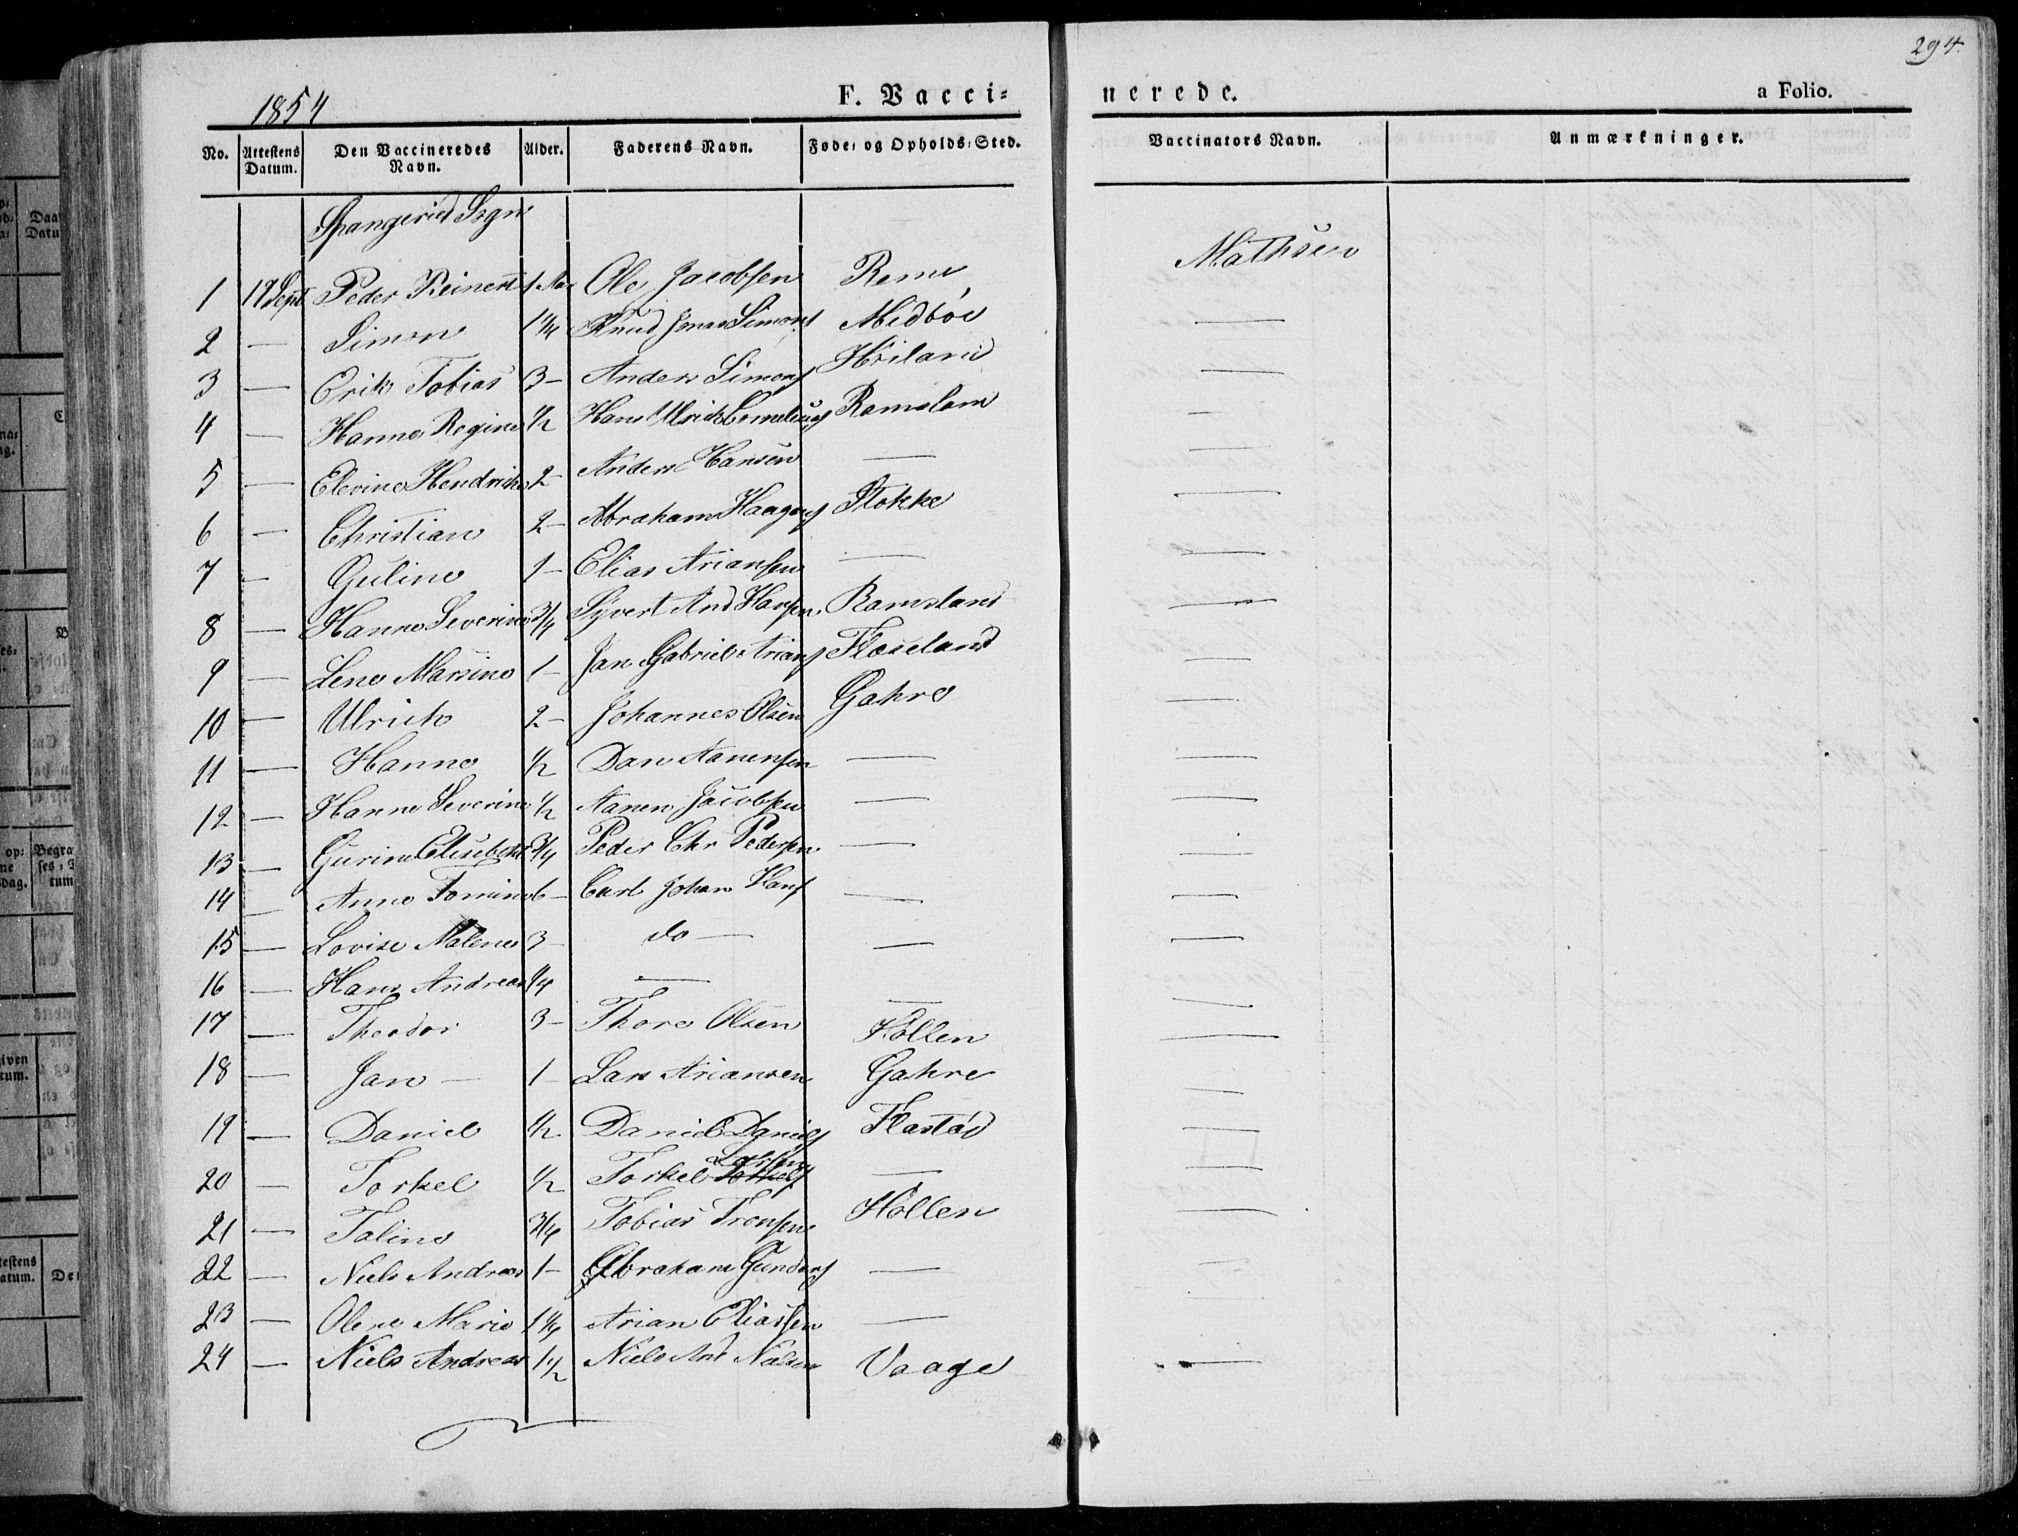 294.
1854 F. Vacci- nerede. a Folio.
No. Attestens Datum. Den Vaccineredes Navn. Alder. Faderens Navn. Føde- og Opholds-Sted. Vaccinators Navn. Anmærkninger.
Spangeried Sogn
1 17 Sept Peder Reinert 1 Aar Ole Jacobsen Reme Mathsen
2 — Simon 1 1/4 Knud Jonas Simons Midbøe —
3 — Erik Tobias 3 — Anders Simons Høiland —
4 — Hanne Regine 1/2 Hans Ulrich Cornelius Ramsland —
5 — Elevine Hendrike 2 — Anders Hansen — —
6 — Christian 2 — Abraham Haagens Stokke —
7 — Guline 1 — Elias Ariansen — —
8 — Hanne Severine 3/4 Syvert And Hansen Ramsland —
9 — Lene Marsine 1 — Jan Gabriel Arians Flaseland —
10 — Ulrich 2 — Johannes Olsen Gahre —
11 — Hanne 1/2 Dan Aanensen — —
12 — Hanne Severine 1/2 Aanen Jacobsen — —
13 — Gurine Elisebeth 3/4 Peder Chr Pedersen — —
14 — Anne Tomine 6 — Carl Johan Hans — —
15 — Lovise Malene 3 — do — — —
16 — Hans Andreas 1/4 — — —
17 — Theodor 3 — Thore Olsen Høllen —
18 — Jan — 1 — Lars Ariansen Gahre —
19 — Daniel 1/2 Daniel Daniels Flastød —
20 — Torkel 1/2 Torkel Torkels Larsen —
21 — Taline 3/4 Tobias Tronsen Høllen —
22 — Niels Andreas 1 — Abraham Gunders — —
23 — Olene Marie 1 1/4 Arian Eliassen — —
24 — Niels Andreas 1 1/2 Niels And Nielsen Vaage —